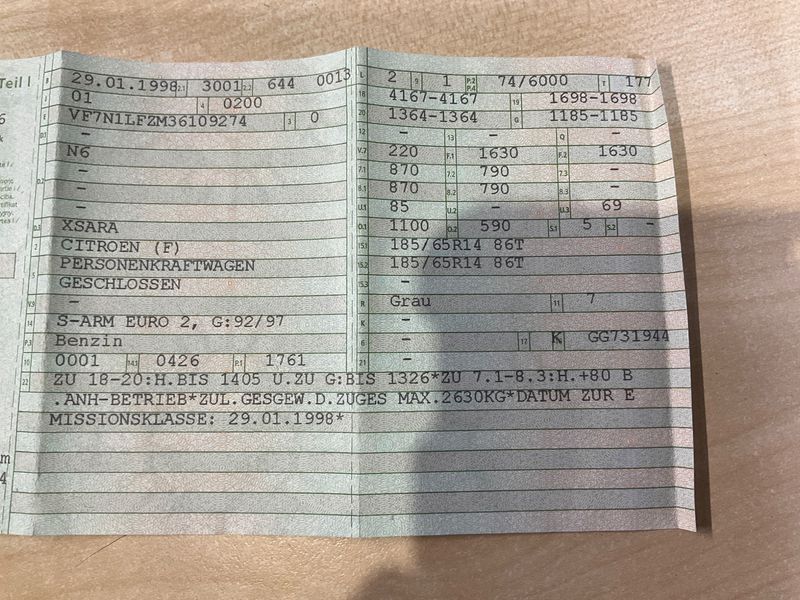 Teil I
B 29.01.1998 2.1 3001 2.2 644 0013 L 2 9 1 P.2 P.4 74/6000 T 177
J 01 4 0200 18 4167-4167 19 1698-1698
E VF7N1LFZM36109274 3 0 20 1364-1364 G 1185-1185
D.1 - 12 - 13 - Q -
N6 V.7 220 F.1 1630 F.2 1630
D.2 - 7.1 870 7.2 790 7.3 -
- 8.1 870 8.2 790 8.3 -
- U.1 85 U.2 - U.3 69
D.3 XSARA O.1 1100 O.2 590 S.1 5 S.2 -
2 CITROEN (F) 15.1 185/65R14 86T
5 PERSONENKRAFTWAGEN 15.2 185/65R14 86T
GESCHLOSSEN 15.3 -
V.9 - R Grau 11 7
14 S-ARM EURO 2, G:92/97 K -
P.3 Benzin 6 - 17 K GG731944
10 0001 14.1 0426 P.1 1761 21 -
22 ZU 18-20:H.BIS 1405 U.ZU G:BIS 1326*ZU 7.1-8.3:H.+80 B
.ANH-BETRIEB*ZUL.GESGEW.D.ZUGES MAX.2630KG*DATUM ZUR E
MISSIONSKLASSE: 29.01.1998*